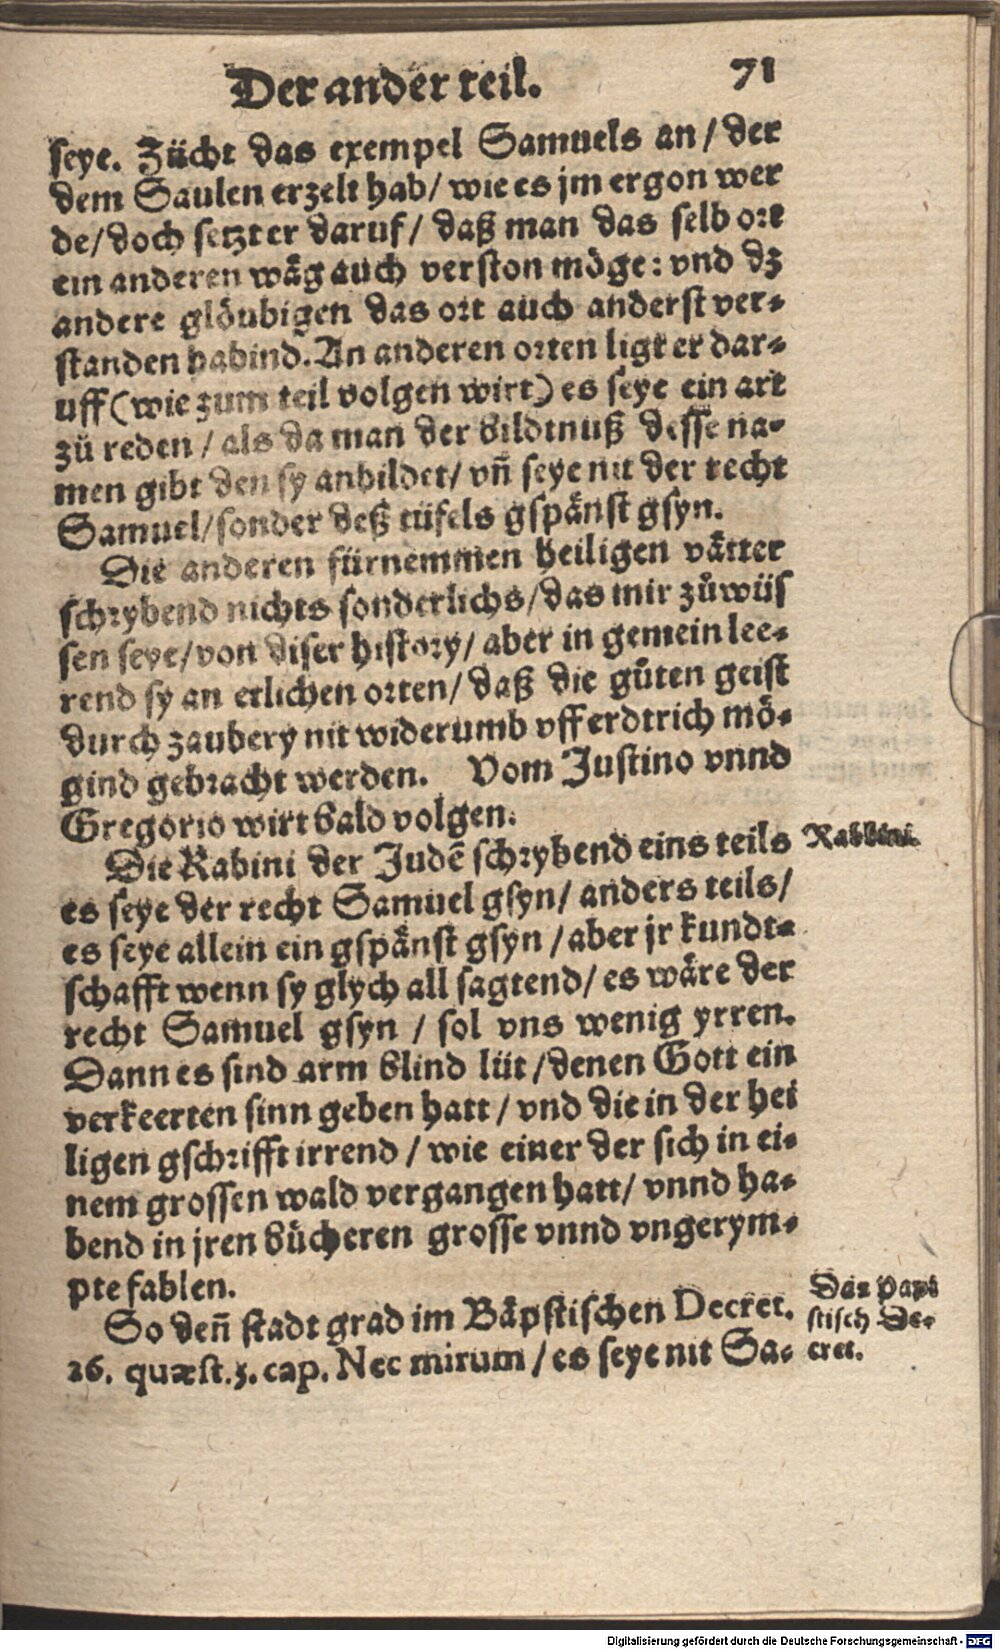 Der ander teil. 71
seye. Zücht das exempel Samuels an / der
dem Saulen erzelt hab / wie es jm ergon wer
de / doch setzt er daruf / daß man das selb ort
ein anderen wäg auch verston möge: vnd dz
andere glöubigen das ort auch anderst ver-
standen habind. An anderen orten ligt er dar-
uff (wie zum teil volgen wirt) es seye ein art
zů reden / als da man der bildtnuß desse na-
men gibt den sy anbildet / vñ seye nit der recht
Samuel / sonder deß tüfels gspänst gsyn.
Die anderen fürnemmen heiligen vätter
schrybend nichts sonderlichs / das mir zůwüs
sen seye / von diser history / aber in gemein lee-
rend sy an etlichen orten / daß die gůten geist
durch zaubery nit widerumb vff erdtrich mö-
gind gebracht werden. Vom Justino vnnd
Gregorio wirt bald volgen.
Die Rabini der Judẽ schrybend eins teils
Rabbini.
es seye der recht Samuel gsyn / anders teils /
es seye allein ein gspänst gsyn / aber jr kundt-
schafft wenn sy glych all sagtend / es wäre der
recht Samuel gsyn / sol vns wenig yrren.
Dann es sind arm blind lüt / denen Gott ein
verkeerten sinn geben hatt / vnd die in der hei
ligen gschrifft irrend / wie einer der sich in ei-
nem grossen wald vergangen hatt / vnnd ha-
bend in jren bücheren grosse vnnd vngerym-
pte fablen.
So deñ stadt grad im Bäpstischen Decret.
26. quæst. 5. cap. Nec mirum / es seye nit Sa-
Das Papi
stisch De-
cret.
Digitalisierung gefördert durch die Deutsche Forschungsgemeinschaft - DFG